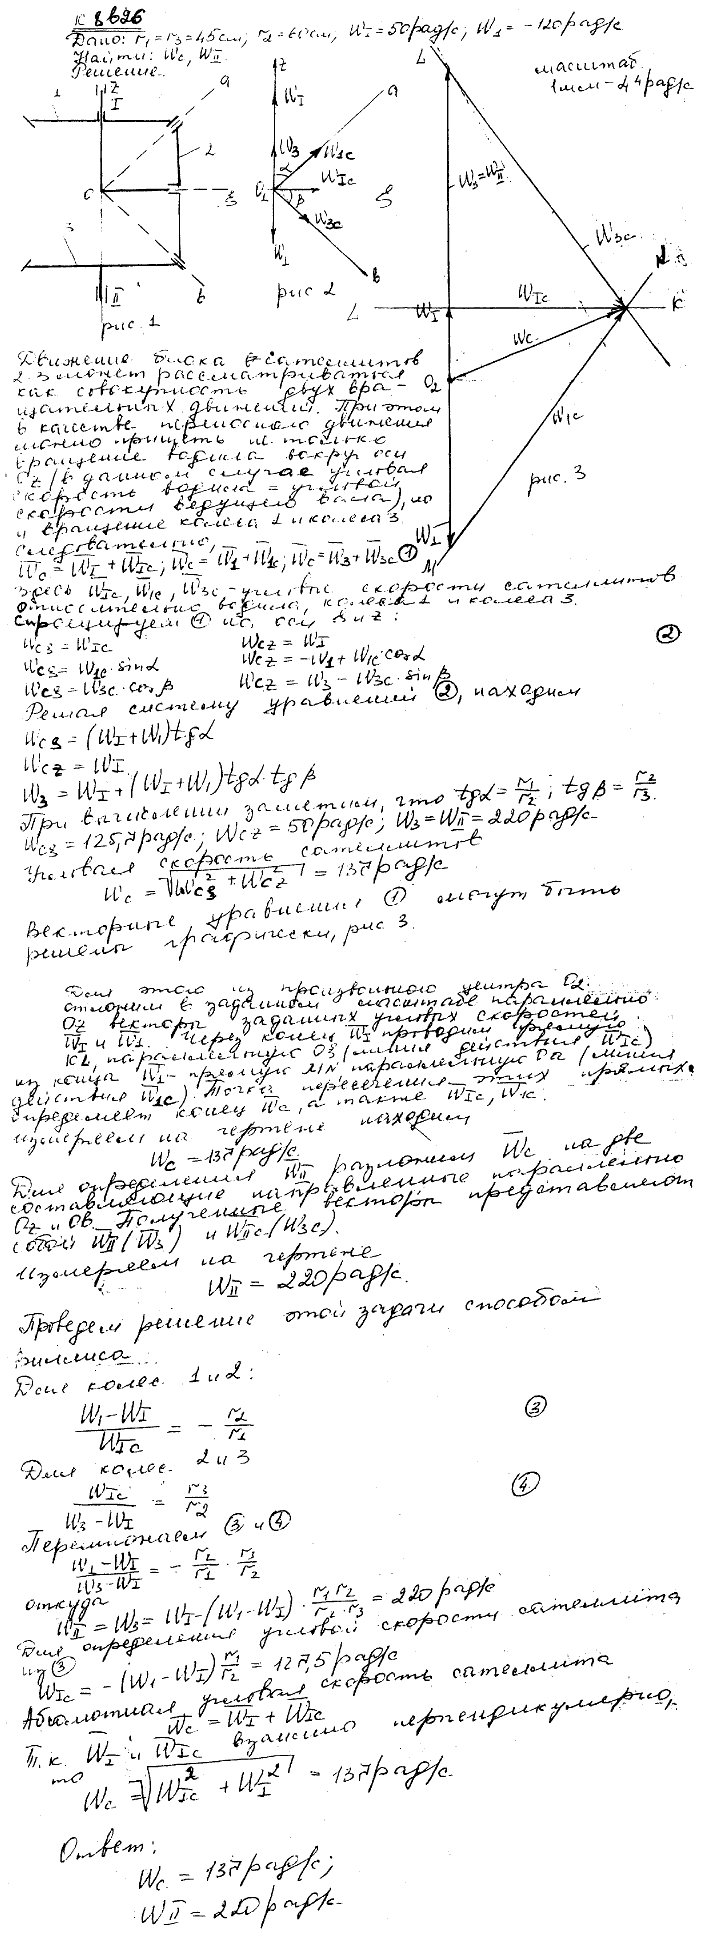 К 8626
Дано: r₁ = r₃ = 45 см; r₂ = 60 см, W_I = 50 рад/с; W₁ = -120 рад/с
Найти: Wc, W_II.
Решение.
масштаб
1 мм - 4,4 рад/с
рис. 1
рис 2
рис. 3
Движение блока сателлитов
2-3 может рассматриваться
как совокупность двух вра-
щательных движений. При этом
в качестве переносного движения
можно принять не только
вращение водила вокруг оси
Oz (в данном случае угловая
скорость водила = угловой
скорости ведущего вала), но
и вращение колеса 1 и колеса 3.
Следовательно,
W̄c = W̄_I + W̄_Ic; W̄c = W̄₁ + W̄₁c; W̄c = W̄₃ + W̄₃c ①
здесь W̄_Ic, W̄₁c, W̄₃c - угловые скорости сателлитов
относительно водила, колеса 1 и колеса 3.
Спроецируем ① на оси ξ и z:
Wcξ = W_Ic Wcz = W_I ②
Wcξ = W₁c·sinα Wcz = -W₁ + W₁c·cosα
Wcξ = W₃c·cosβ Wcz = W₃ - W₃c·sinβ
Решая систему уравнений ②, находим
Wcξ = (W_I + W₁)tgα
Wcz = W_I
W₃ = W_I + (W_I + W₁)tgα·tgβ
При вычислении заметим, что tgα = r₁/r₂; tgβ = r₂/r₃.
Wcξ = 125,7 рад/с; Wcz = 50 рад/с; W₃ = W_II = 220 рад/с
Угловая скорость сателлитов
Wc = √(Wcξ² + Wcz²) = 137 рад/с
Векторные уравнения ① могут быть
решены графически, рис 3.
Для этого из произвольного центра O₂
отложим в заданном масштабе параллельно
Oz векторы заданных угловых скоростей
W̄_I и W̄₁. Через конец W̄_I проводим прямую
KL, параллельную Oξ (линия действия W̄_Ic)
из конца W̄₁ - прямую MN параллельную Oa (линия
действия W̄₁c). Точка пересечения этих прямых
определяет конец W̄c, а также W̄_Ic, W̄₁c.
Измеряем на чертеже находим
Wc = 137 рад/с.
Для определения W̄_II разложим W̄c на две
составляющие направленные параллельно
Oz и Oв. Полученные векторы представляют
собой W̄_II (W̄₃) и W_IIc (W₃c).
Измеряем на чертеже
W_II = 220 рад/с.
Проведем решение этой задачи способом
Виллиса.
Для колес 1 и 2:
(W₁ - W_I)/W_Ic = - r₂/r₁ ③
Для колес 2 и 3
W_Ic/(W₃ - W_I) = r₃/r₂ ④
Перемножаем ③ и ④
(W₁ - W_I)/(W₃ - W_I) = - r₂/r₁ · r₃/r₂
откуда
W_II = W₃ = W_I - (W₁ - W_I) · r₁r₂/r₂·r₃ = 220 рад/с
Для определения угловой скорости сателлита
из ③
W_Ic = -(W₁ - W_I) r₁/r₂ = 127,5 рад/с
Абсолютная угловая скорость сателлита
W̄c = W̄_I + W̄_Ic
Т.к. W̄_I и W̄_Ic взаимно перпендикулярно,
то
Wc = √(W_Ic² + W_I²) = 137 рад/с.
Ответ:
Wc = 137 рад/с;
W_II = 220 рад/с.